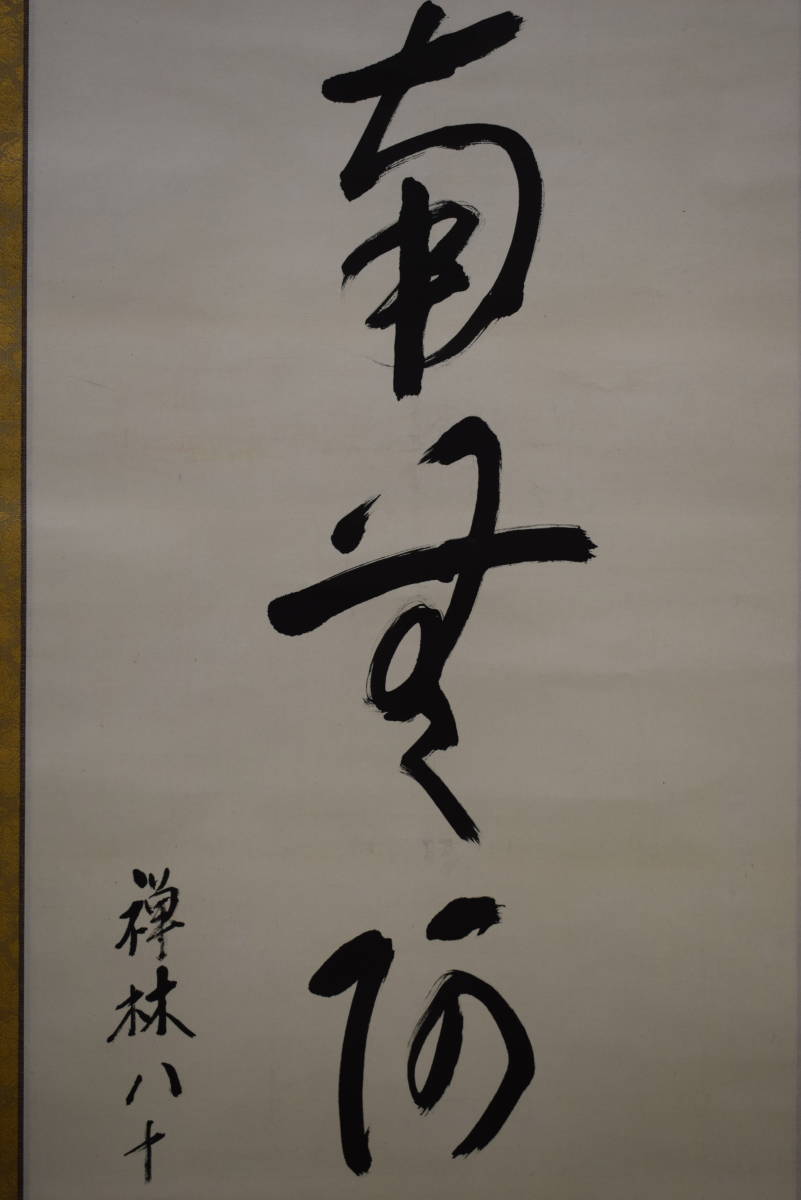 南無阿
禅林八十